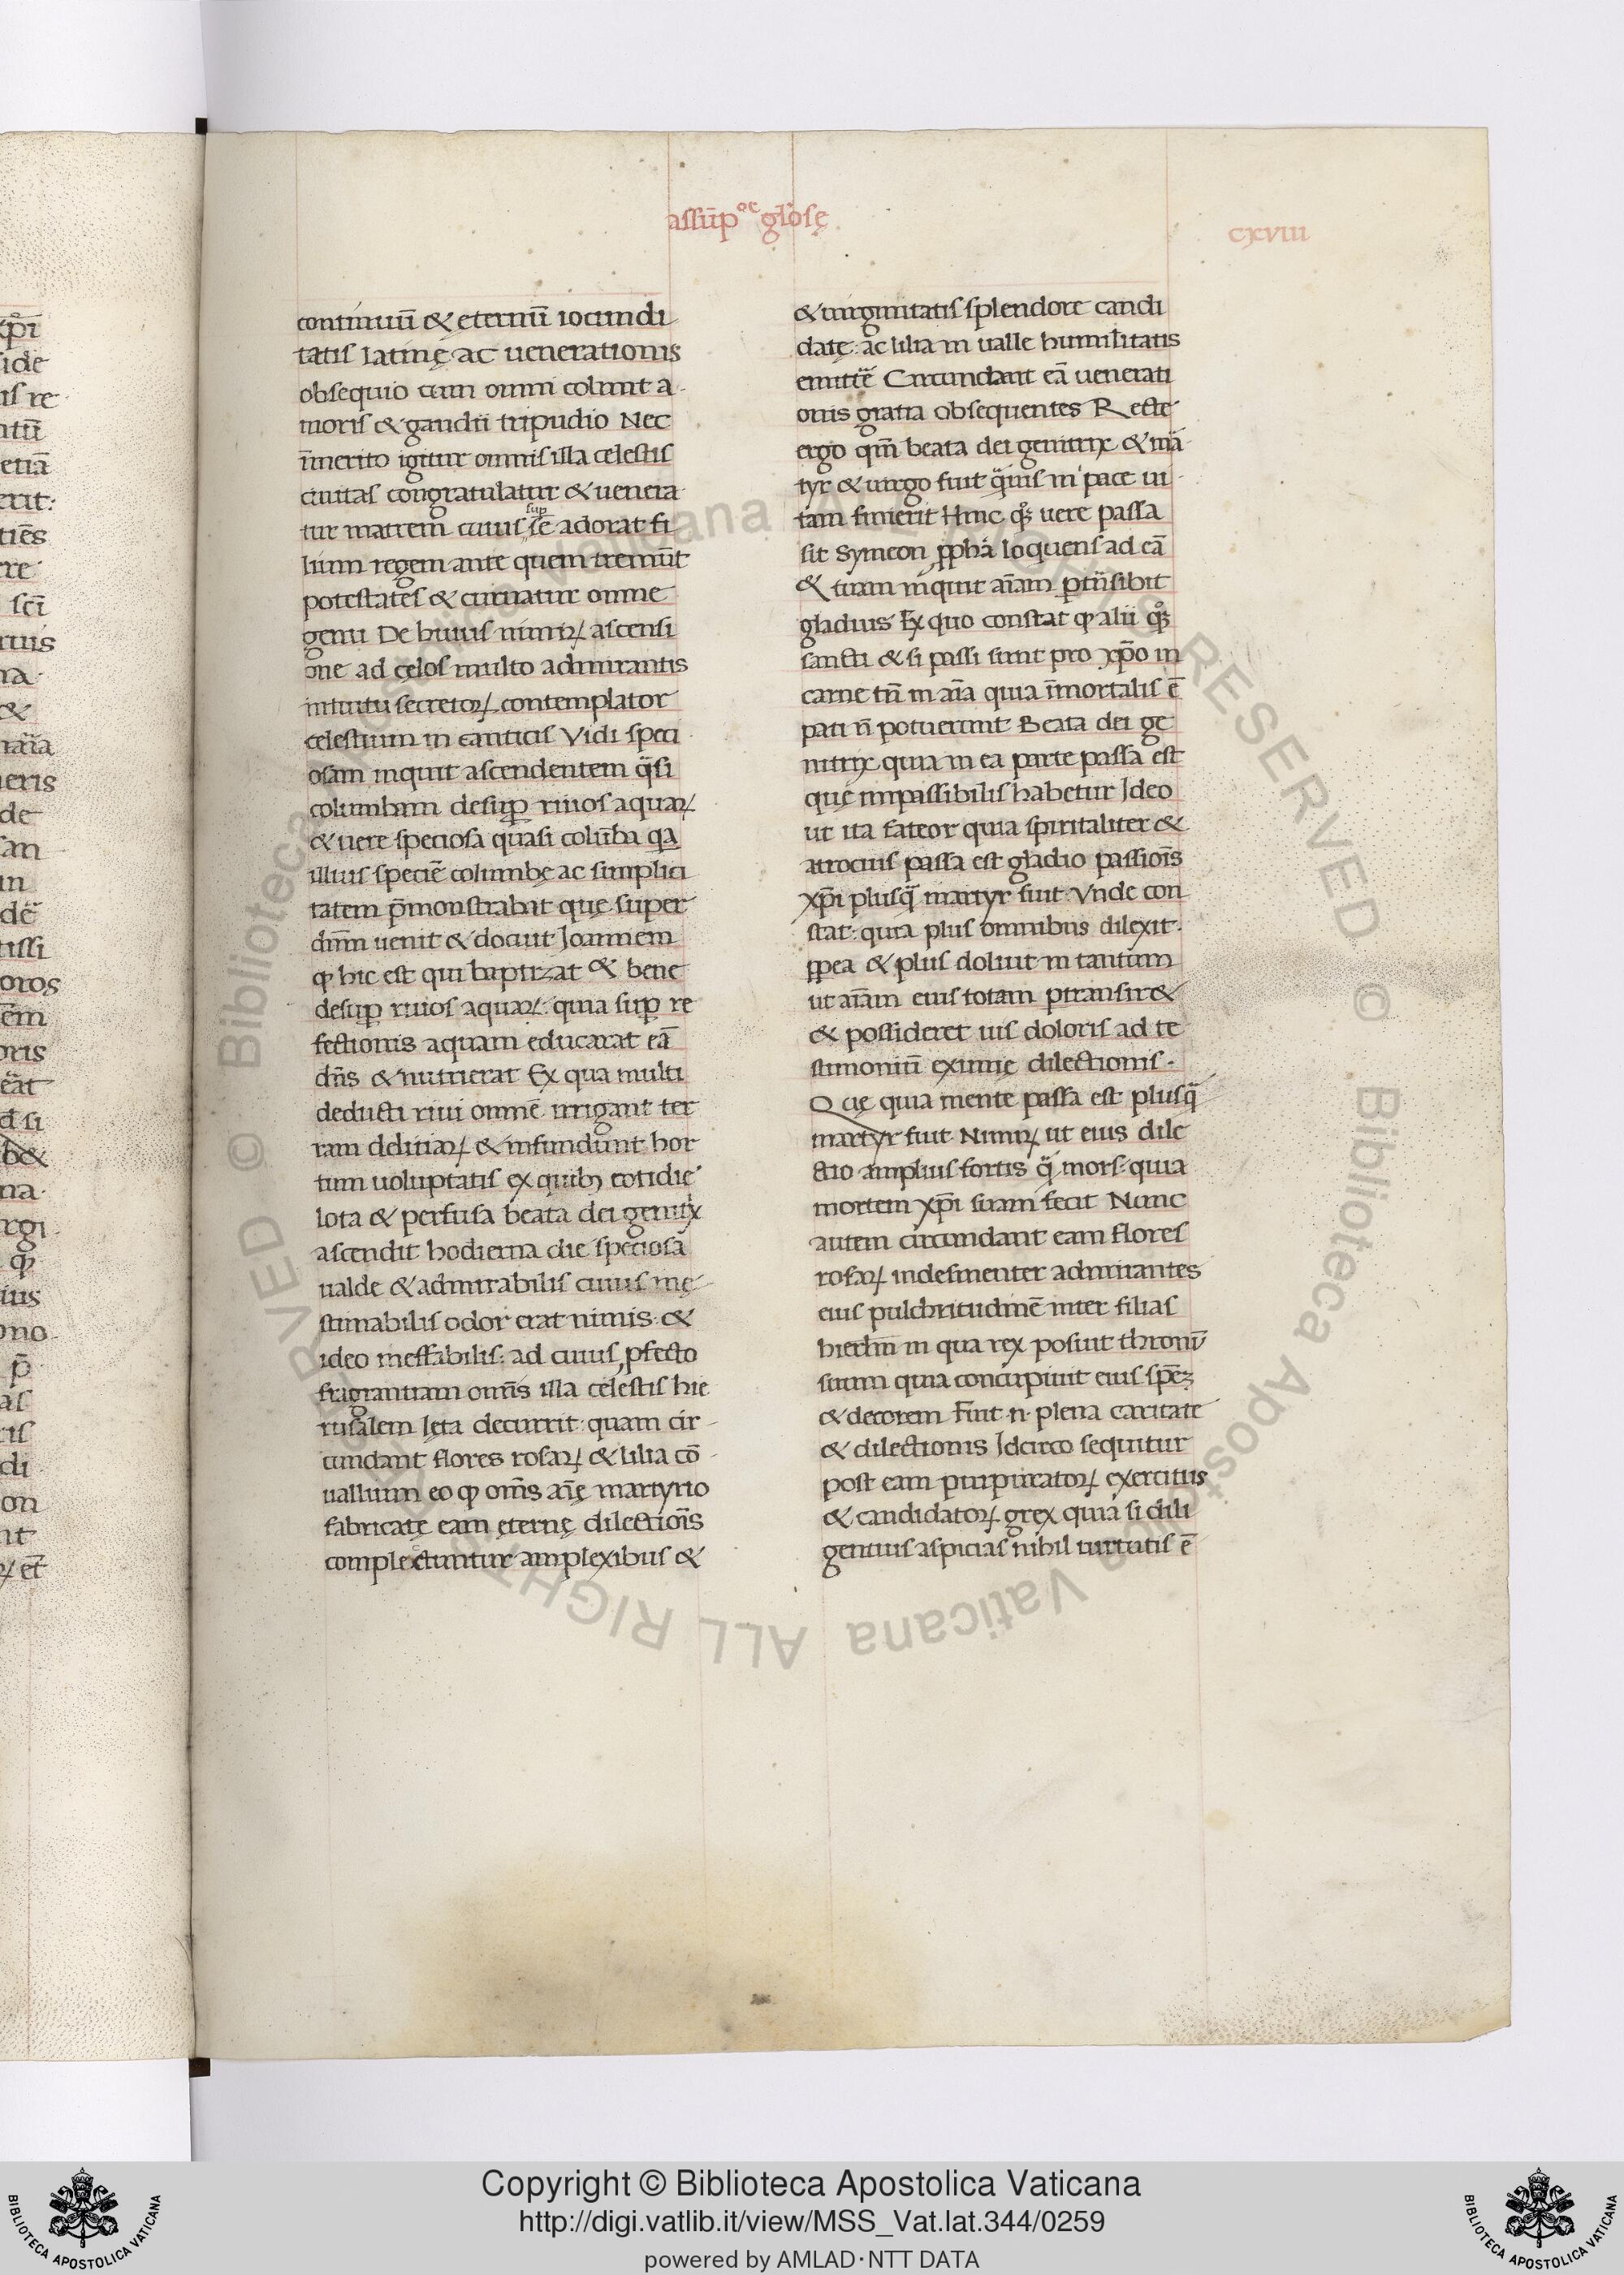 assūp^oe glosę
cxviii
continuū & eternū iocundi
tatis latinę ac uenerationis
obsequio cum omni colunt a-
moris & gaudii tripudio Nec
īmerito igitur omnis illa celestis
ciuitas congratulatur & uenera
tur matrem cuius se sup adorat fi
lium regem ante quem tremūt
potestates & curuatur omne
genu De huius nimiꝝ ascensi
one ad cęlos multo admirantis
intuitu secretoꝝ contemplator
celestium in canticis Vidi speci
osam inquit ascendentem q̈si
columbam desuꝑ riuos aquaꝝ
& uere speciosa quasi colūba qa
illius speciē columbę ac simplici
tatem p̄monstrabat quę super
dnm̄ uenit & docuit Joannem
ꝙ hic est qui baptizat & bene
desuꝑ riuos aquaꝝ quia suꝑ re
fectionis aquam educarat eā
dn̄s & nutrierat Ex qua multi
deducti riui omnē irrigant ter
ram delitiaꝝ & infundunt hor
tum uoluptatis ex quibꝫ cotidie
lota & perfusa beata dei genitx
ascendit hodierna die speciosa
ualde & admirabilis cuius inę
stimabilis odor erat nimis: &
ideo ineffabilis: ad cuius ꝓfecto
fragrantiam omīs illa celestis hie
rusalem lęta decurrit: quam cir-
cundant flores rosaꝝ & lilia cō-
uallium eo ꝙ omīs aīę martyrio
fabricatę eam ęternę dilectiōis
complectuntur amplexibus &
& uirginitatis splendore candi
datę: ac lilia in ualle humilitatis
enutite Circundant eā uenerati
onis gratia obsequentes Recte
ergo qm̄ beata dei genitrix & mä
tyr & uirgo fuit q̈uis in pace ui-
tam finierit Hinc qͦꝫ uere passa
sit Symeon ꝓpha loquens ad eā
& tuam inquit aīam ꝑtrāsibit
gladius Ex quo constat ꝙ alii qͦꝫ
sancti & si passi sunt pro xp̄o in
carne tn̄ in aīa quia īmortalis ē
pati n̄ potuerunt Beata dei ge
nitrix quia in ea parte passa est
quę impassibilis habetur Jdeo
ut ita fateor quia spiritaliter &
atrocius passa est gladio passiōis
xp̄i plusq̈ martyr fuit Vnde con
stat: quia plus omnibus dilexit.
ꝓpea & plus doluit in tantum
ut aīam eius totam ꝑtransir&
& possideret uis doloris ad te
stimoniū eximię dilectionis.
Quę quia mente passa est plusq̈
martyr fuit Nimiꝝ ut eius dile
ctio amplius fortis q̈ mors: quia
mortem xp̄i suam fecit Nunc
autem circundant eam flores
rosaꝝ indesinenter admirantes
eius pulchritudinē inter filias
hierlm̄ in qua rex posuit thronū
suum quia concupiuit eius spēꝫ
& decorem Fuit .n. plena caritate
& dilectionis Jdcirco sequitur
post eam purpuratoꝝ exercitus
& candidatoꝝ grex quia si dili
gentius aspicias nihil uirtutis ē
Copyright © Biblioteca Apostolica Vaticana
http://digi.vatlib.it/view/MSS_Vat.lat.344/0259
powered by AMLAD·NTT DATA
BIBLIOTECA APOSTOLICA VATICANA
BIBLIOTECA APOSTOLICA VATICANA